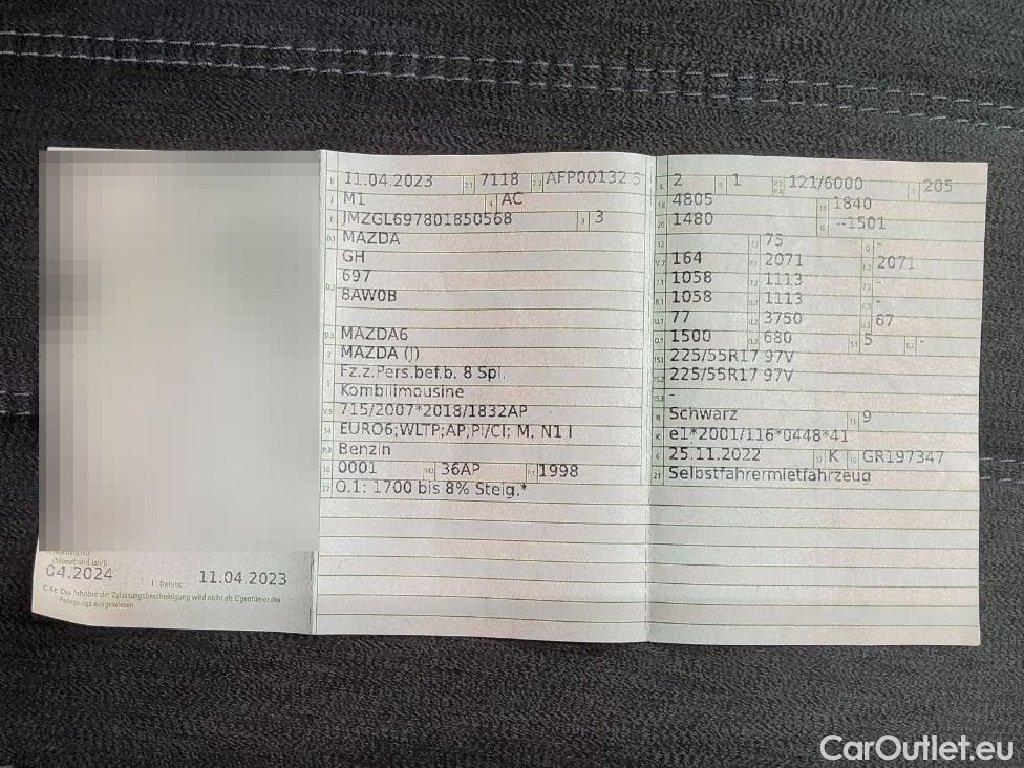 11.04.2023 7118 AFP00132 5
M1 AC
JMZGL697801850568 3
MAZDA
GH
697
8AW0B
MAZDA6
MAZDA (J)
Fz.z.Pers.bef.b. 8 Spl.
Kombilimousine
715/2007*2018/1832AP
EURO6;WLTP;AP,PI/CI; M, N1 I
Benzin
0001 36AP 1998
O.1: 1700 bis 8% Steig.*
2 1 121/6000 205
4805 1840
1480 --1501
75 -
164 2071 2071
1058 1113 -
1058 1113 -
77 3750 67
1500 680 5 -
225/55R17 97V
225/55R17 97V
-
Schwarz 9
e1*2001/116*0448*41
25.11.2022 K GR197347
Selbstfahrermietfahrzeug
Monat und Jahr
04.2024 Datum: 11.04.2023
C.4c Der Inhaber der Zulassungsbescheinigung wird nicht als Eigentümer des
Fahrzeugs ausgewiesen.
CarOutlet.eu